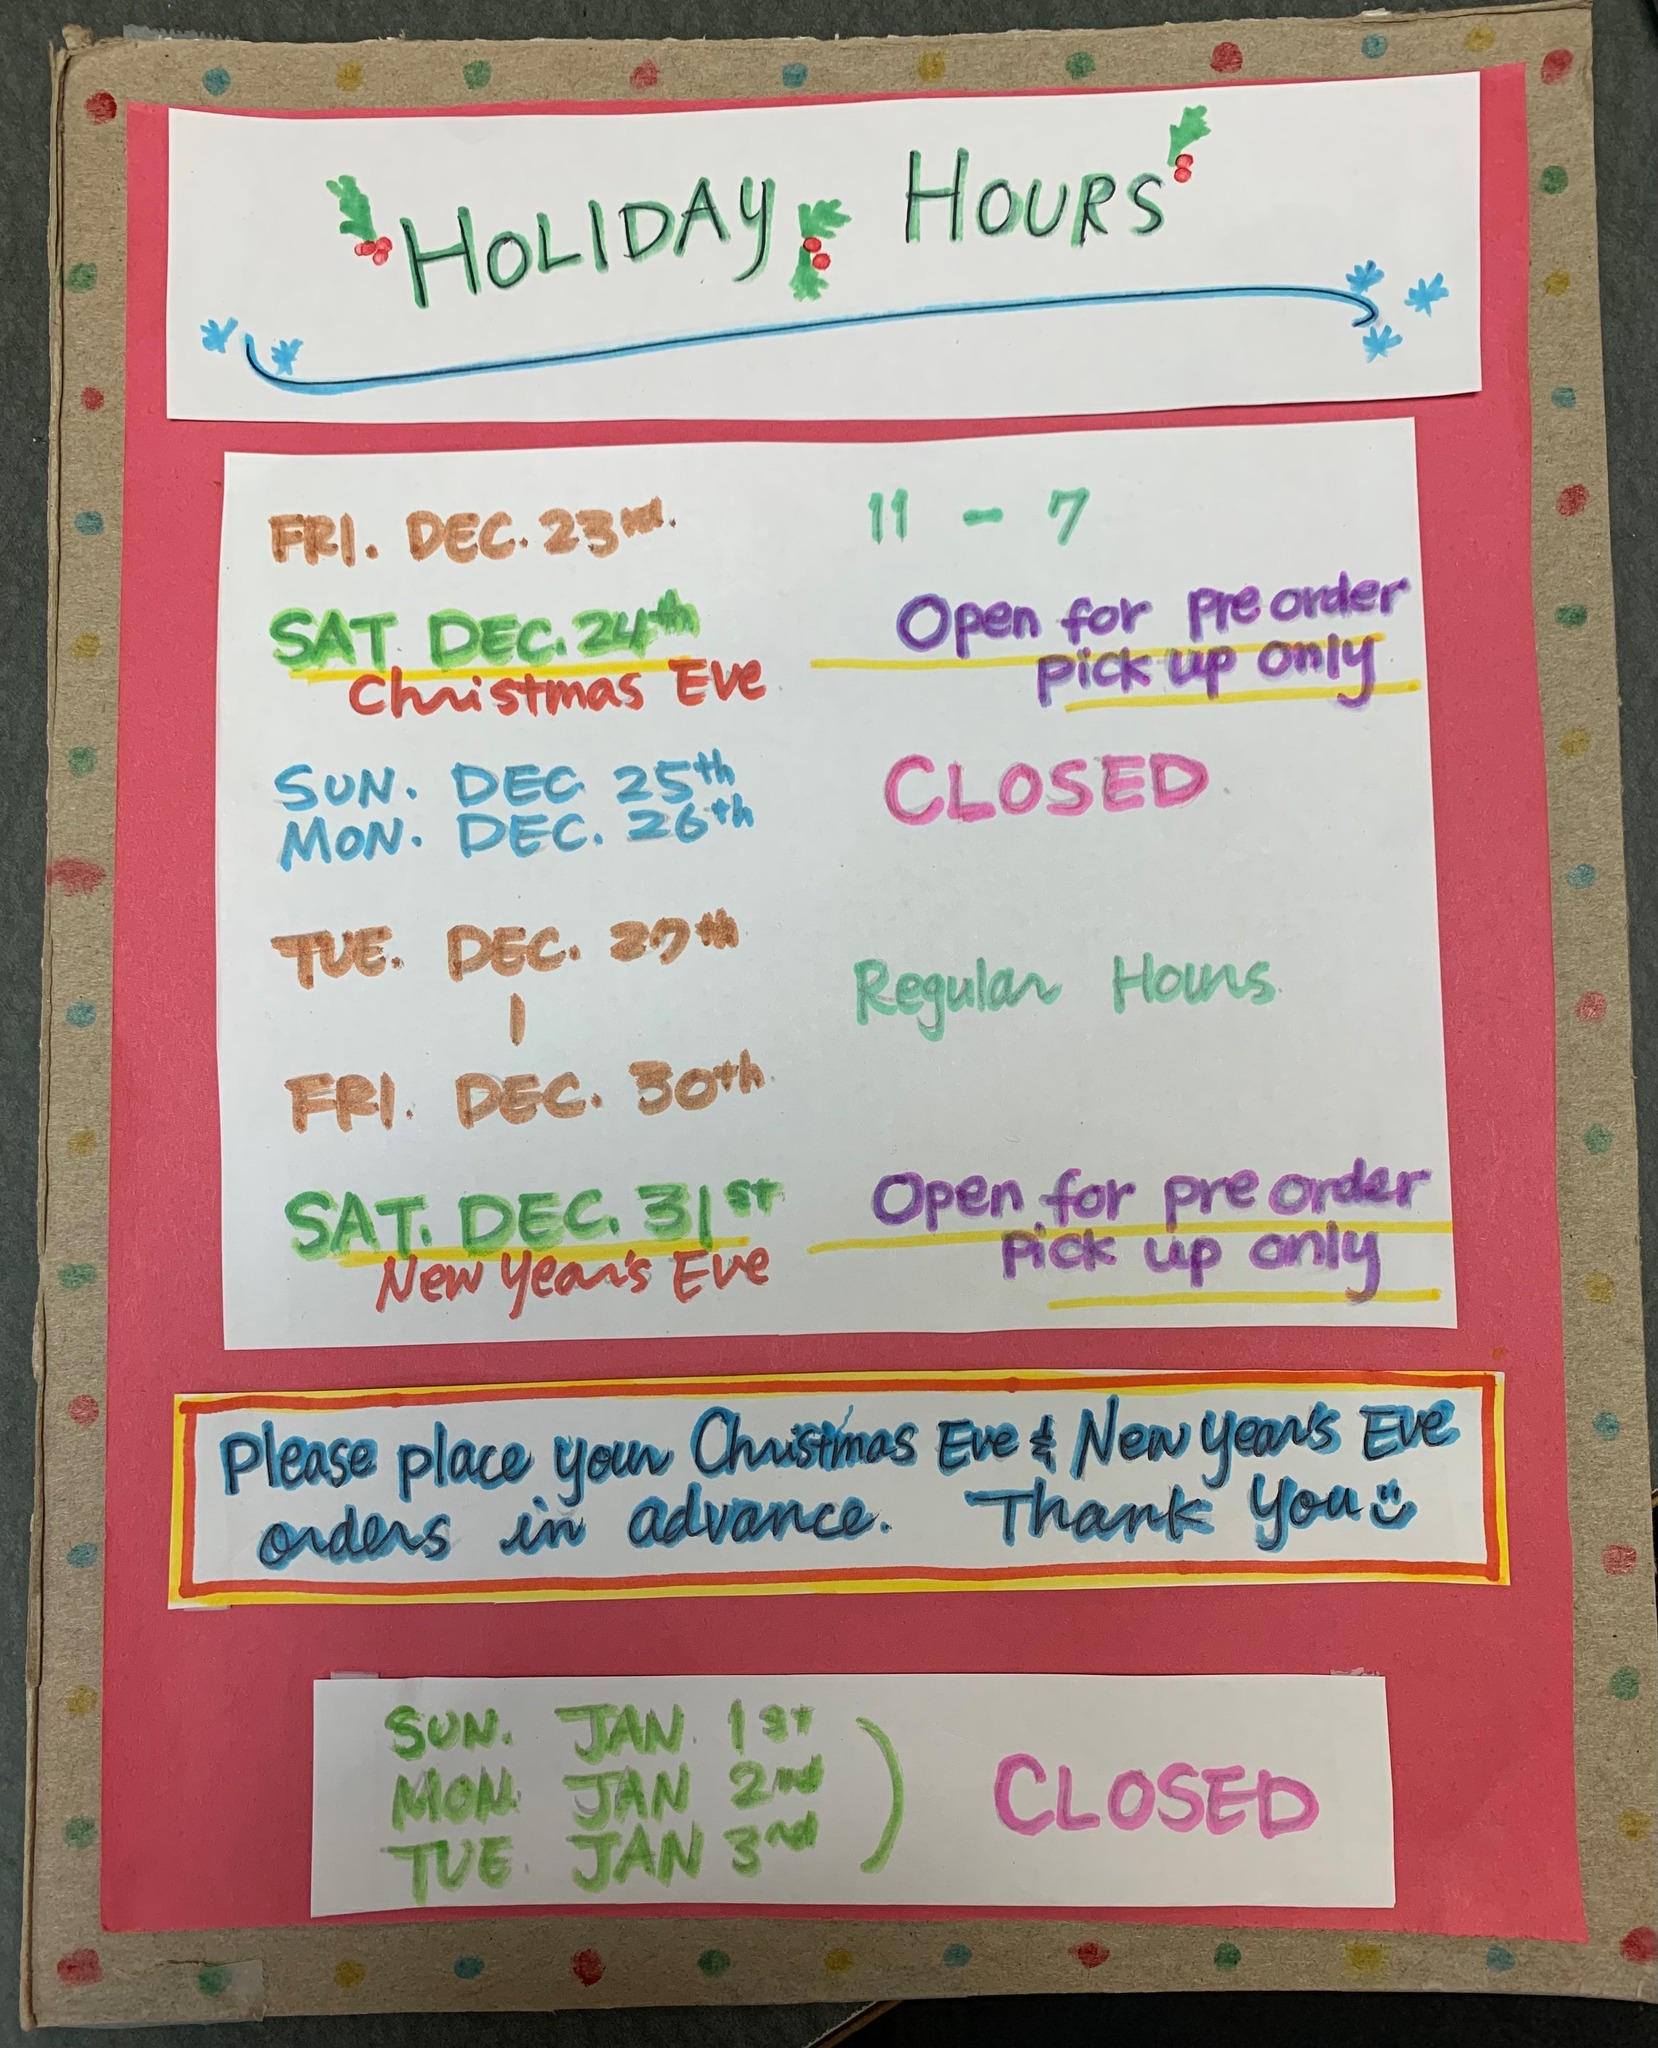 HOLIDAY HOURS
FRI. DEC. 23rd. 11 - 7
SAT. DEC. 24th Open for pre order
Christmas Eve pick up only
SUN. DEC. 25th CLOSED
MON. DEC. 26th
TUE. DEC. 27th
|
Regular Hours
FRI. DEC. 30th
SAT. DEC. 31st Open for pre order
New Year's Eve pick up only
Please place your Christmas Eve & New Year's Eve
orders in advance. Thank You
SUN. JAN. 1st
MON. JAN 2nd ) CLOSED
TUE. JAN 3rd